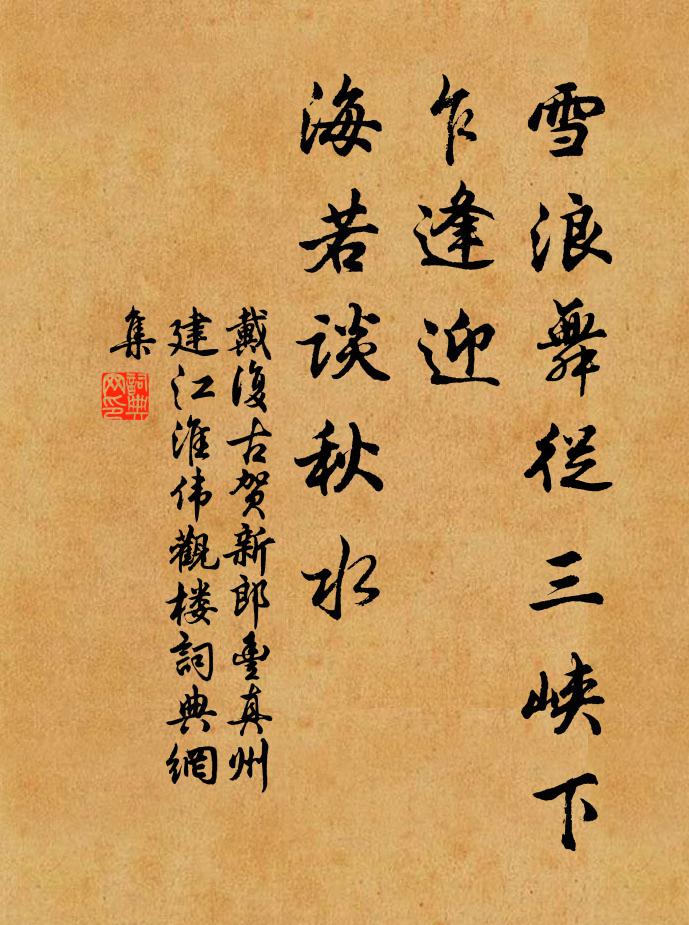 雪浪舞從三峡下
乍逢迎
海若談秋水
戴復古贺新郎豊真州
建江淮伟觀楼詞典網
集
詞典
网印